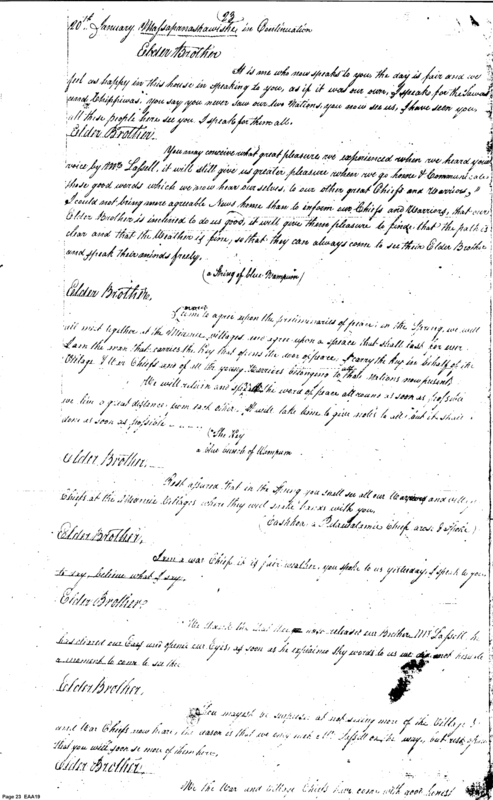 23
20th January Massapanashawishe in Continuation
Elder Brother
It is me who now speaks to you the day is fair and we
feel as happy in this house in speaking to you, as if it was our own. I speak for the
and Chippiwas, You say you never saw our two Nations, you now see us, I have seen you
all these people here see you I speak for them all.
Elder Brother.
You may conceive what great pleasure we experienced when we heard your
voice by Mr. Lasell, it will still give us greater pleasure when we go home & Communicate
these good words which we now hear ourselves, to our other great Chiefs and Warriors,
I could not bring more agreable News home than to inform our Chiefs and Warriors, that our
Elder Brother is inclined to do us good, it will give them pleasure to find, that the path is
clear and that the Weather is fine, so that they can always come to see their Elder Brother
and speak their minds freely.
(a String of blue Wampum)
Elder Brother.
to agree upon the preliminaries of peace, in the Spring we will
all meet together at the Miamie Villages and agree upon a peace that shall last for ever
I am the man that carries the Key that opens the door of peace. I carry the Key in behalf of the
Village & War Chiefs and of all the young Warriors belonging to the Nations now present
We will return and the word of peace all round as soon as possible
we live a great distance from each other. It will take time to give notice to all but it shall be
done as soon as possible
(The Key
a blue bunch of Wampum
Elder Brother.
Rest assured that in the Spring you shall see all our and village
Chiefs at the Miamie Villages where they will shake hands with you.
a Putawatamie Chief arose & spoke)
Elder Brother.
I am a war Chief it is fair weather, you spoke to us yesterday, I speak to you
to day, believe what I say.
Elder Brother?
We thank the released our Brother Mr. Lassell he
has cleared our Ears and opened our Eyes, as soon as he explained thy words to us we did not hesitate
a moment to come to see thee
Elder Brother,
You mayest be surprised at not seeing more of the Village
and War Chiefs now here, the reason is that we only met Mr. Lassell on the way, but rest
that you will soon see more of them here.
Elder Brother
We the War and Village Chiefs have come with good
Page 23 EAA19